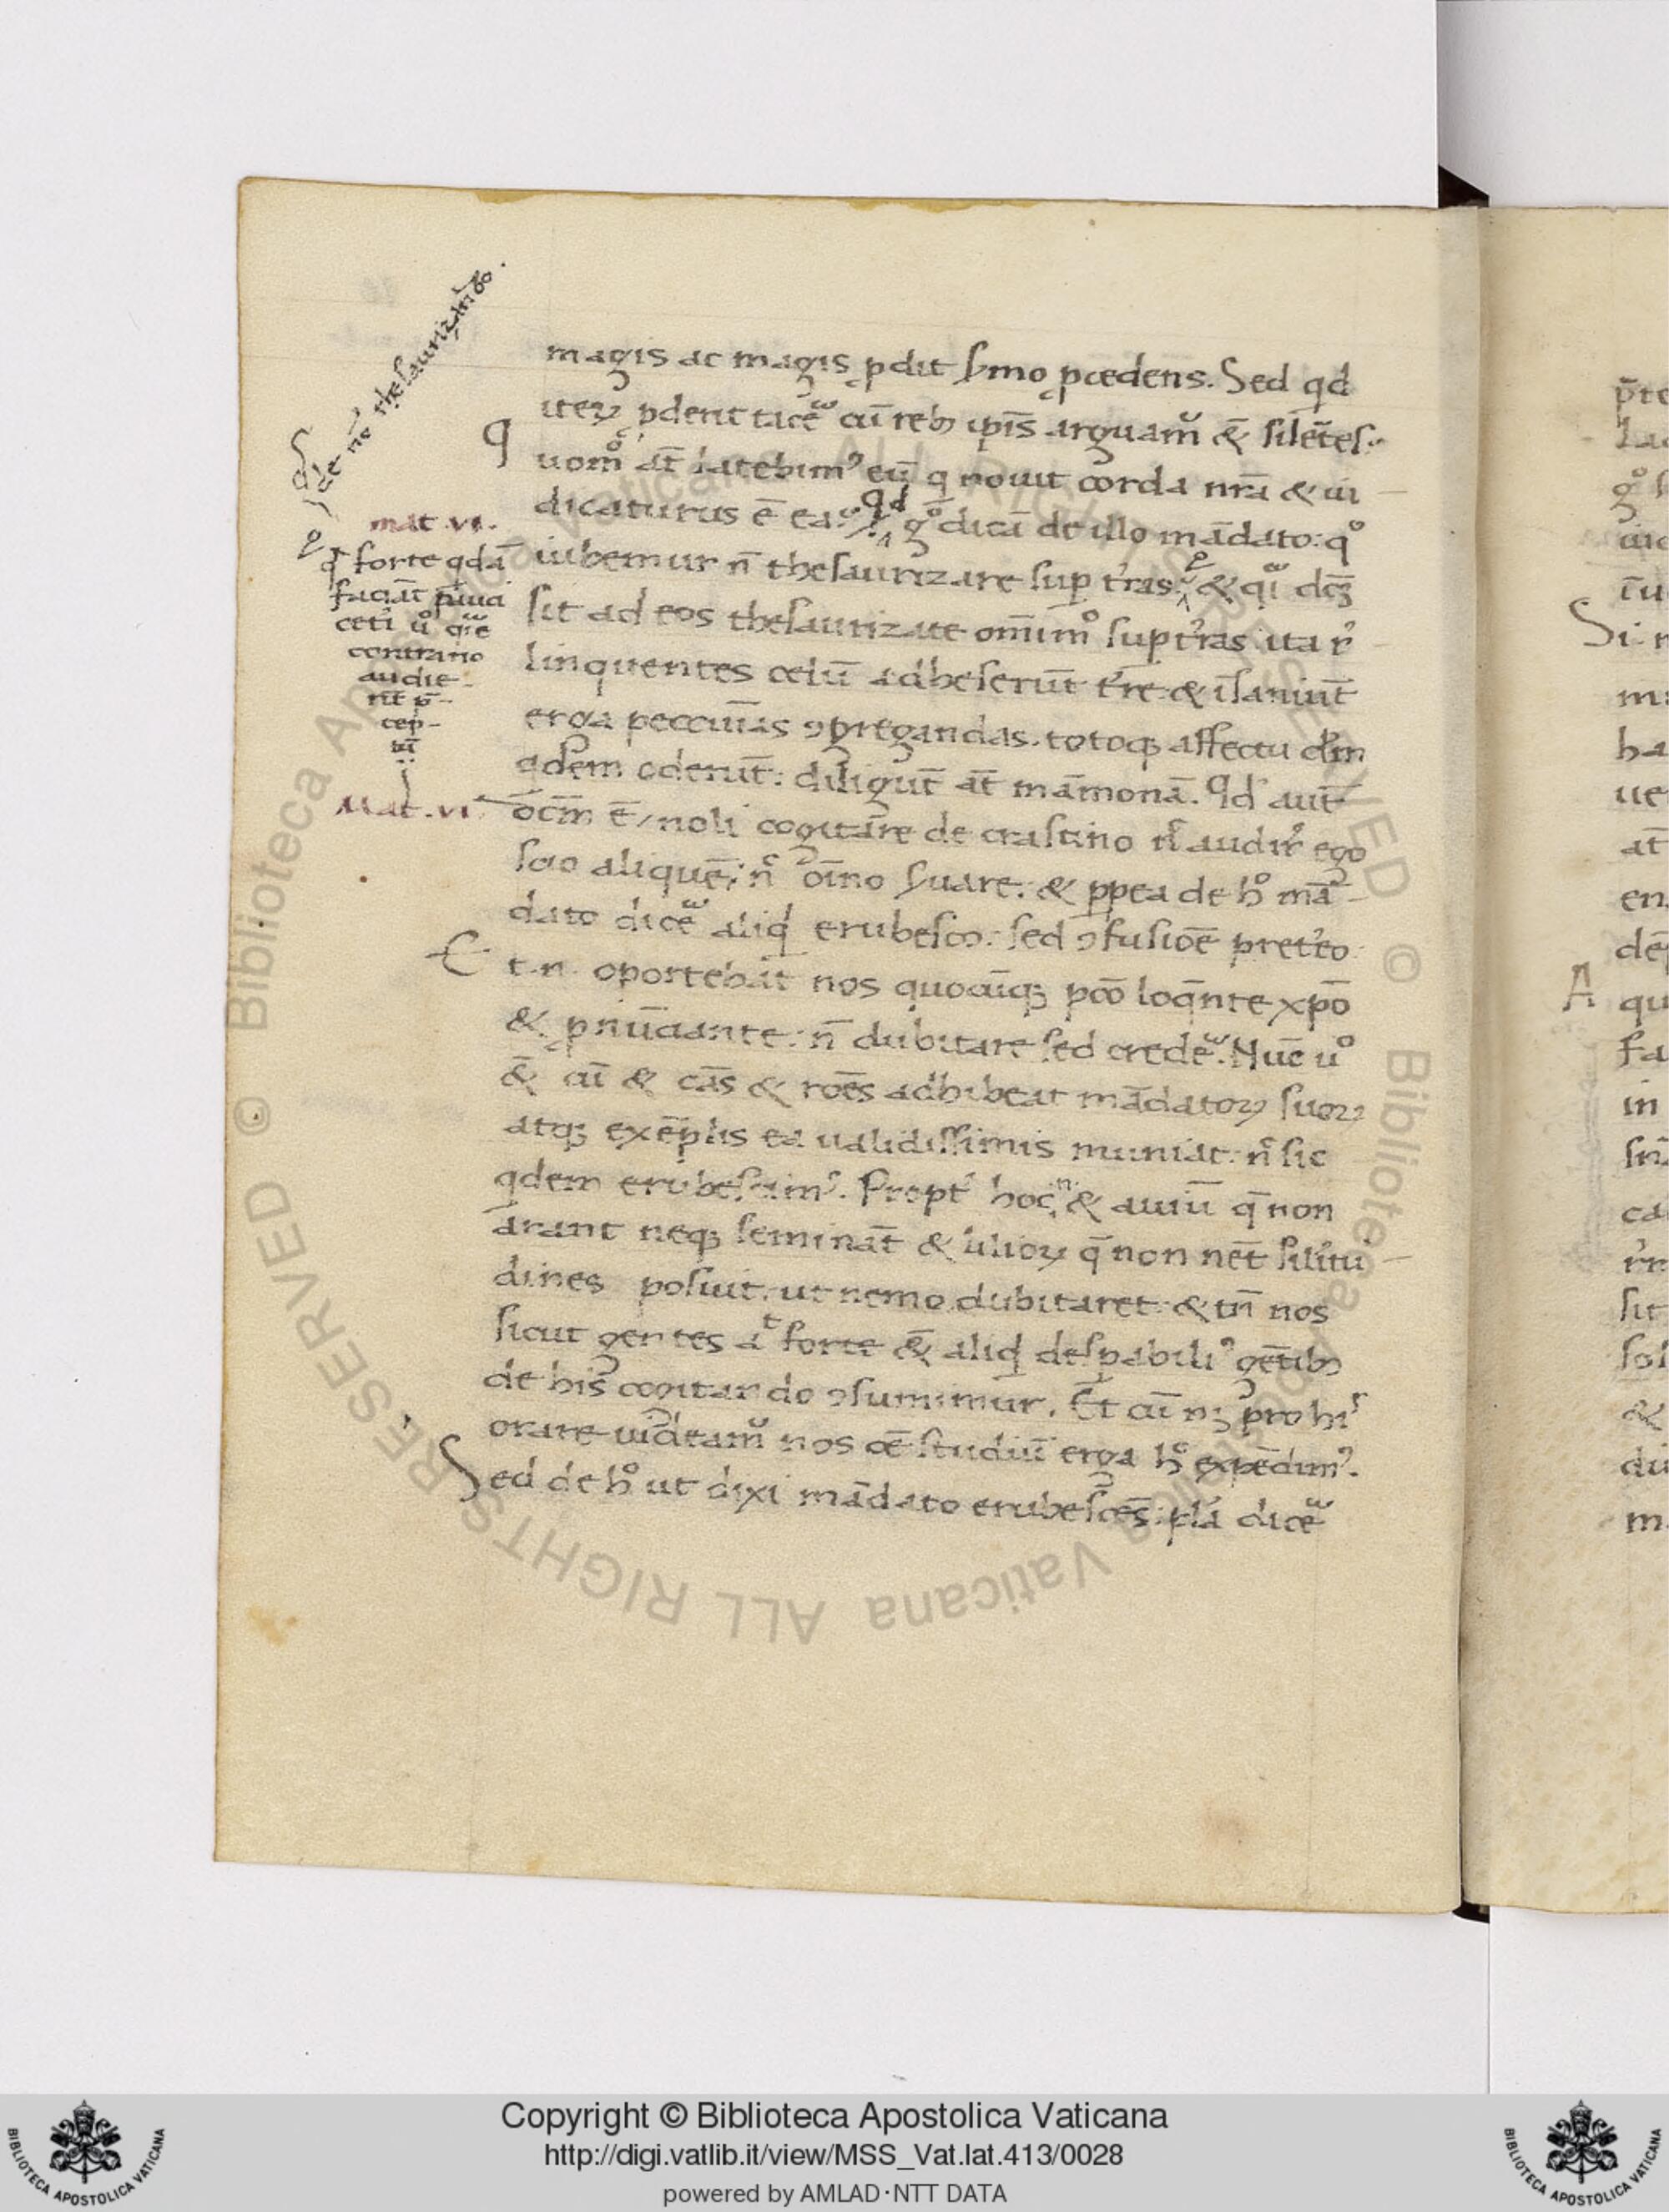 magis ac magis ꝓdit ẜmo ꝓcedens. Sed qd
iteꝝ ꝓderit tac̄e cū reb; ip̄is arguamᷣ & silētes.
q
uomº at̄ latebimꝰ eū q nouit corda nr̄a & iu
dicaturus ē ea. qd gº dicā de illo mādato: qº
iubemur n̄ thesaurizare sup t'ras. & qi dc̄ꝫ
sit ad eos thesaurizate om̄imº sup t'ras ita r'
linquentes celū adheserūt t're & īsaniūt
erga peccunias ꝯgregandas. totoqꝫ affectu dm̄
qdem oderut̄: diligut̄ at̄ māmonā. qd aut̄
ocm̄ ē, noli cogitare de crastino n̄ audir' ego
scio aliquē, n̄ oīno ẜuare. & ꝓpea de hº mā
dato dic̄e aliq erubesco: sed ꝯfusioē pret'eo
E t .n. oportebat nos quocūqꝫ pcō loq̄nte xp̄o
& ꝓnūciante: n̄ dubitare sed crede. Nūc uº
& cū & cās & roēs adhibeat mādatoꝝ suoꝝ
atqꝫ exēplis ea ualidissimis muniat: n̄ sic
qdem erubescimꝰ. Propt' hoc .n. & auiū q̄ non
arant neqꝫ seminat̄ & lilioꝝ q̄ non nēt sil'itu
dines posuit. ut nemo dubitaret: & tn̄ nos
sicut gentes at forte & aliq despabiliꝰ gētib;
de his cogitando ꝯsumimur. Et cū nꝫ pro hiˢ
orare uideamᷣ nos oē studiū erga hº expēdimꝰ.
Sed de hº ut dixi mādato erubescēs pla dic̄e
de nō thesaurizādo.
mat .vi.
q forte qdā
faciāt pauci
cet'i uº q̄
contrario
audie
rīt p̄
cep
tū
Mat .vi.
Copyright © Biblioteca Apostolica Vaticana
http://digi.vatlib.it/view/MSS_Vat.lat.413/0028
powered by AMLAD·NTT DATA
BIBLIOTECA APOSTOLICA VATICANA
BIBLIOTECA APOSTOLICA VATICANA
© Biblioteca Apostolica Vaticana ALL RIGHTS RESERVED